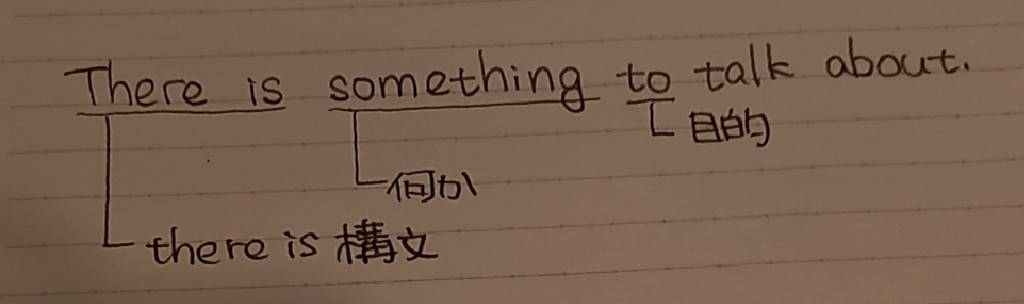 There is something to talk about.
目的
何か
there is 構文